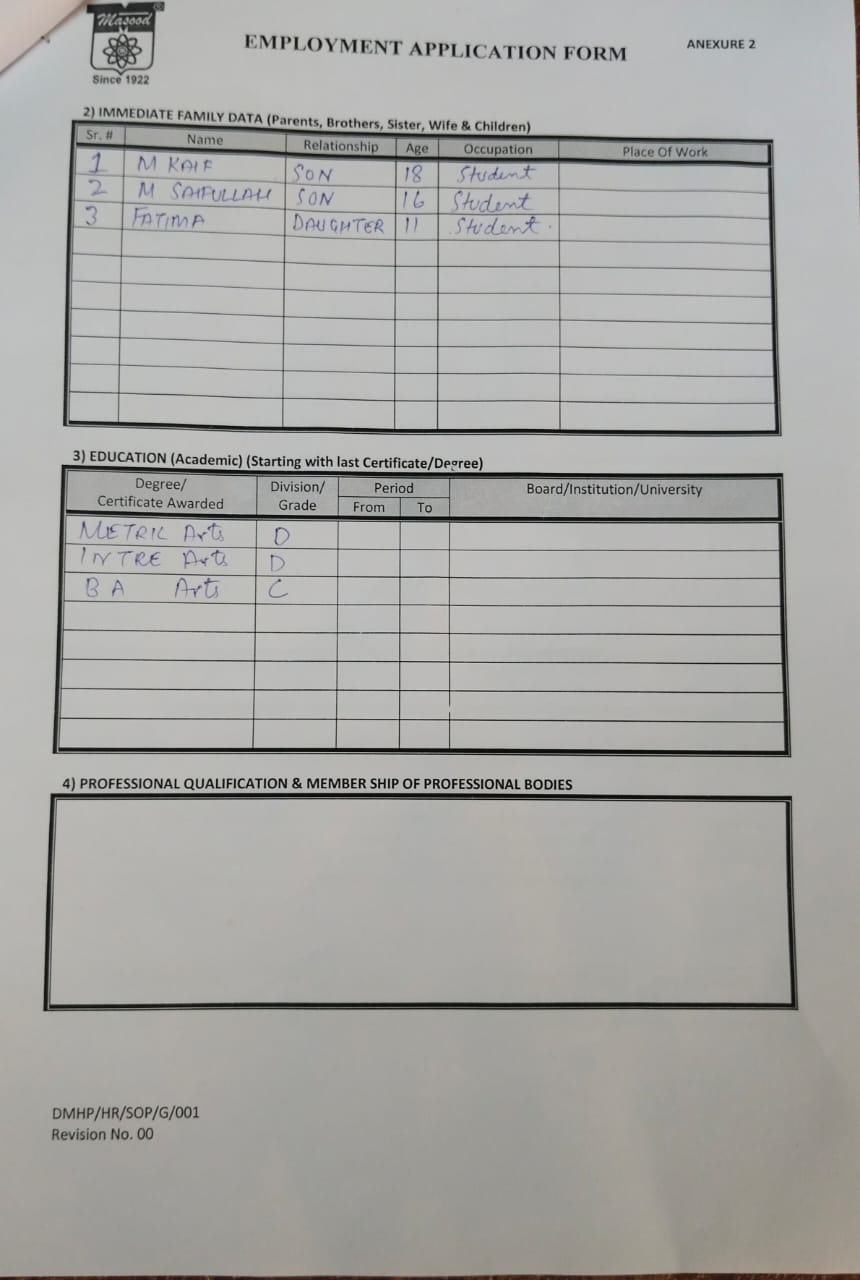 Masood
Since 1922
EMPLOYMENT APPLICATION FORM
ANEXURE 2
2) IMMEDIATE FAMILY DATA (Parents, Brothers, Sister, Wife & Children)
Sr. # Name Relationship Age Occupation Place Of Work
1 M KAIF SON 18 Student
2 M SAIFULLAH SON 16 Student
3 FATIMA DAUGHTER 11 Student
3) EDUCATION (Academic) (Starting with last Certificate/Degree)
Degree/ Division/ Period Board/Institution/University
Certificate Awarded Grade From To
METRIC Arts D
INTRE Arts D
BA Arts C
4) PROFESSIONAL QUALIFICATION & MEMBER SHIP OF PROFESSIONAL BODIES
DMHP/HR/SOP/G/001
Revision No. 00